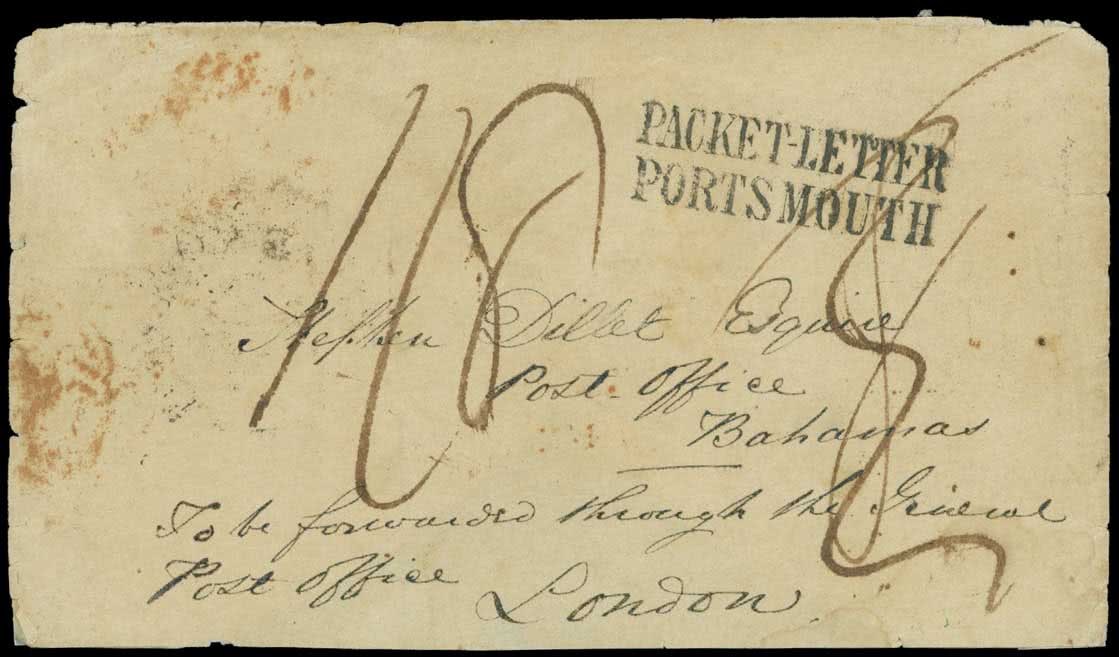 PACKET-LETTER
PORTSMOUTH
Stephen Dillet Esquire
Post Office
Bahamas
To be forwarded through the General
Post Office
London